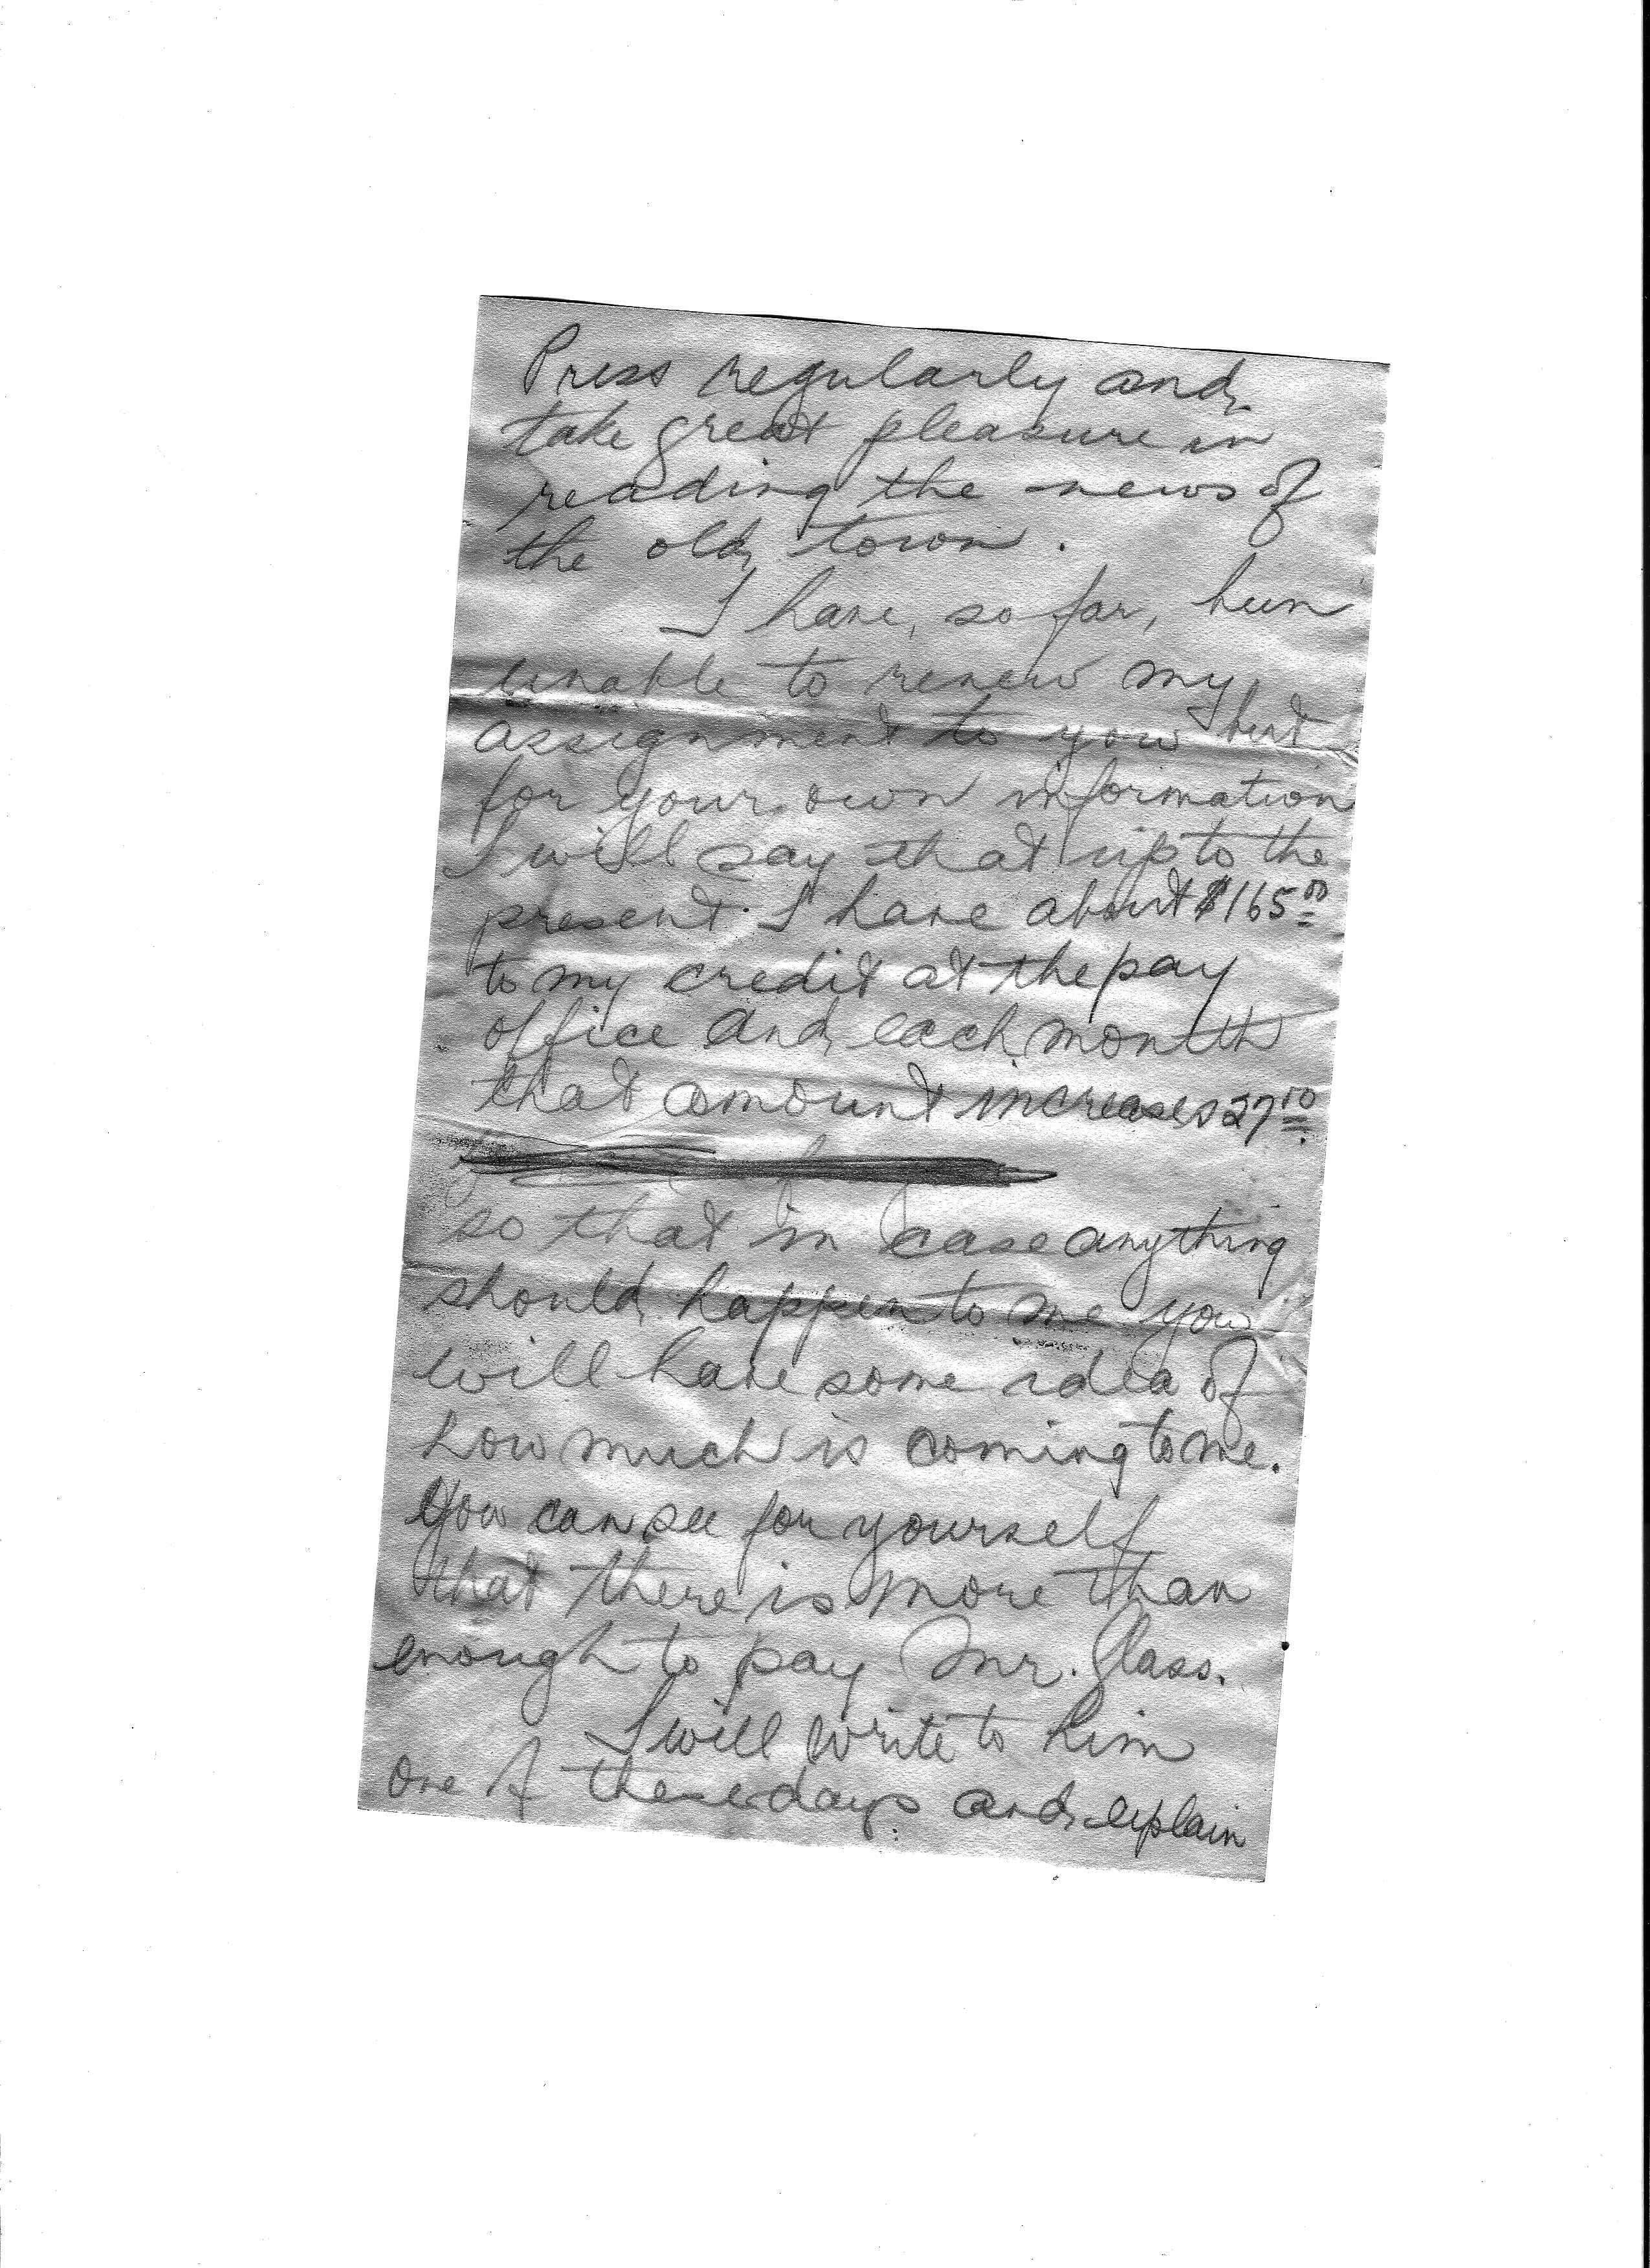 Press regularly and
take great pleasure in
reading the news of
the old town.
I have, so far, been
unable to renew my
assignment to you but
for your own information
I will say that up to the
present I have about $165.00
to my credit at the pay
office and each month
that amount increases 27.10
so that in case anything
should happen to me you
will have some idea of
how much is coming to me.
You can see for yourself
that there is more than
enough to pay Mr. Glass.
I will write to him
one of these days and explain